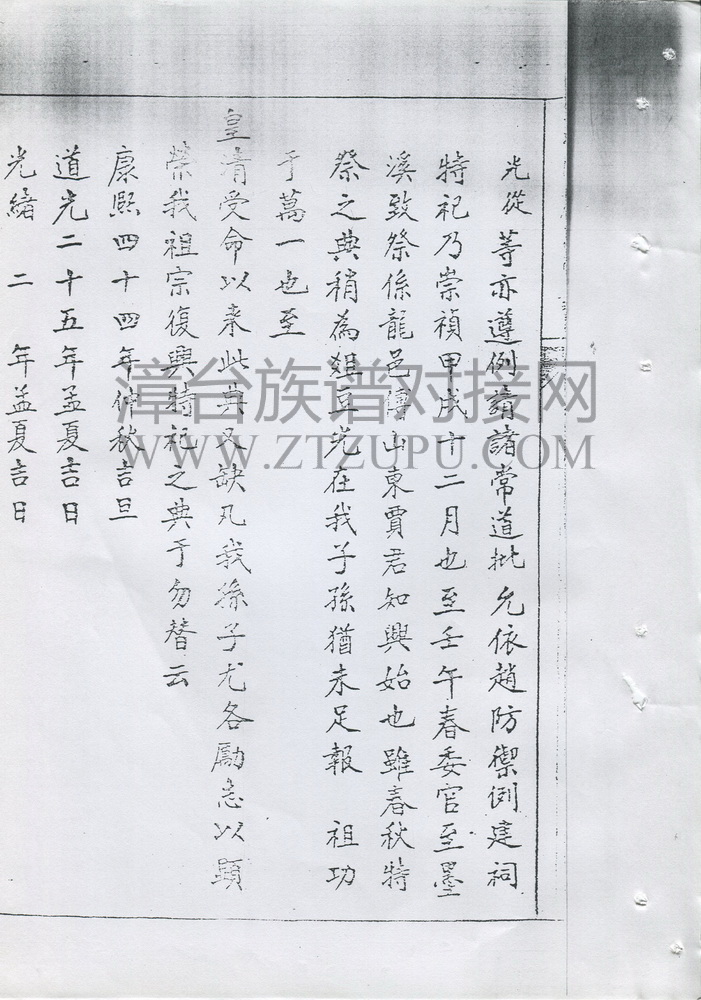 光從等亦遵例請諸常道批允依趙防禦例建祠
特祀乃崇禎甲戌十二月也至壬午春委官至墨
溪致祭係龍邑山東賈君知興始也雖春秋特
祭之典稍為俎豆光在我子孫猶未足報 祖功
于萬一也至
皇清受命以来此典又缺凡我孫子尤各勵志以顕
榮我祖宗復興特祀之典于勿替云
康熙四十四年仲秋吉旦
道光二十五年孟夏吉日
光緒 二 年孟夏吉日
漳台族谱对接网
WWW.ZTZUPU.COM